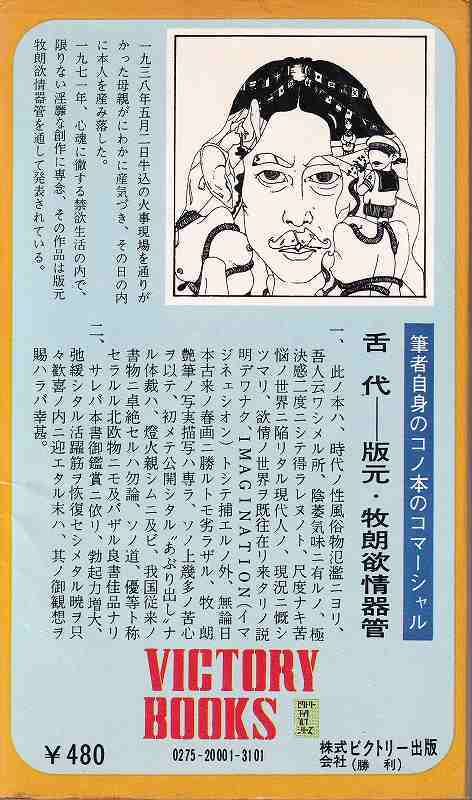 一九三八年五月二日牛込の火事現場を通りが
かった母親がにわかに産気づき、その日の内
に本人を産み落した。
一九七一年、心魂に徹する禁欲生活の内で、
限りない淫靡な創作に専念、その作品は版元
牧朗欲情器管を通して発表されている。
筆者自身のコノ本のコマーシャル
舌代―版元・牧朗欲情器管
一、此ノ本ハ、時代ノ性風俗物氾濫ニヨリ、
吾人云ワシメル所、陰萎気味ニ有ルノ、極
決感二度ニシテ得ラレヌノト、尺度ナキ苦
悩ノ世界ニ陥リタル現代人ノ、現況ニ慨シ
ツマリ、欲情ノ世界ヲ既往在リ来タリノ説
明デワナク、IMAGINATION(イマ
ジネェシオン)トシテ捕エルノ外、無論日
本古来ノ春画ニ勝ルトモ劣ラザル、牧朗
艶筆ノ写実描写ハ専ラ、ソノ上幾多ノ苦心
ヲ以テ、初メテ公開シタル〝あぶり出し〟ナ
ル体裁ハ、燈火親シムニ及ビ、我国従来ノ
書物ニ卓絶セルハ勿論、ソノ道、優等ト称
セラルル北欧物ニモ及バザル良書佳品ナリ
二、サレバ本書御鑑賞ニ依リ、勃起力増大、
弛緩シタル活躍筋ヲ恢復セシメタル暁ヲ只
々歓喜ノ内ニ迎エタル末ハ、其ノ御観想ヲ
賜ハラバ幸甚。
VICTORY
BOOKS
¥480
0275-20001-3101
株式会社ビクトリー出版
(勝利)